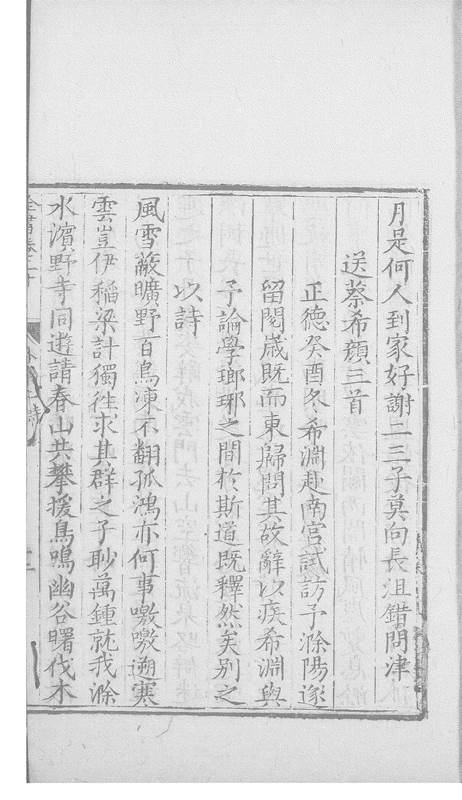 月是何人到家好謝二三子莫向長沮錯問津
送蔡希顏三首
正德癸酉冬希淵赴南宫試訪予滁陽遂
留閱歲既而東歸問其故辭以疾希淵與
予論學瑯琊之間於斯道既釋然矣别之
以詩
風雪蔽曠野百鳥凍不翻孤鴻亦何事噭噭遡寒
雲豈伊稻梁計獨徃求其群之子眇萬鍾就我滁
水濵野寺同遊請春山共攀援鳥鳴幽谷曙伐木